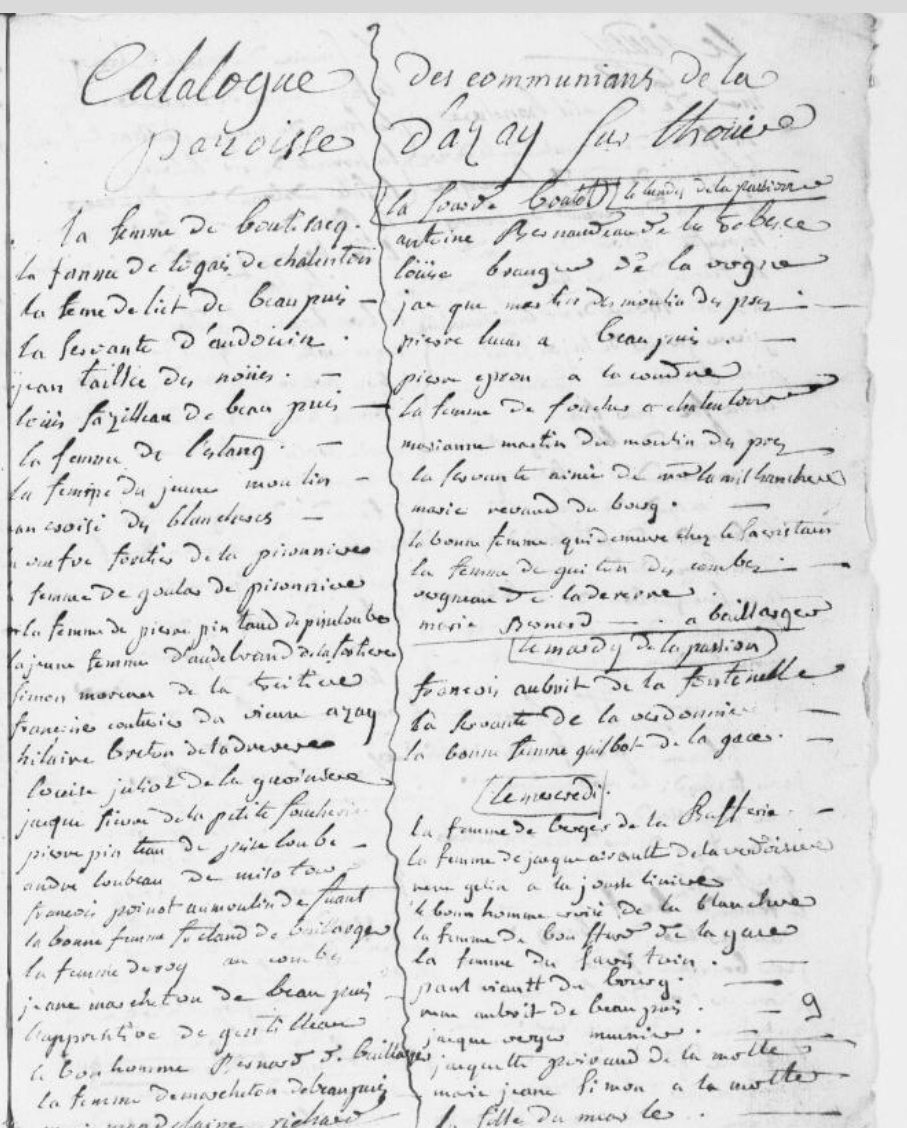 Catalogue des communians de la
paroisse dazay sur thoüere
la femme de boutisacq.
la famme de legais de chalentois
la feme de liet de beaupuis –
la servante d'audoüin.
jean taillée des noües. –
loüis fazilleau de beau puis –
la femme de lestang. –
la femme du jeune moulin –
croisé des blanchares –
fortier de la pironniere
femme de goulas de pironniere
la femme de pierre pintaud de piseloube
la jeune femme d'audebrand de la
simon moreau de la treitiere
françois couturier du vieux azay
hilaire breton de ladreverie
louise juliot de la guoiniere
jacque de la petite foucherie
pierre pinteau de prise loube –
andre loubeau de
françois poinot au moulin de fuant
la bonne femme freland de baillarge
la femme de roy au combes
jeane marcheton de beau puis –
lapprentive de gentilleau
le bon homme Bernard d. baillarge
la femme de marcheton de beaupuis
mandelaine richard
la sourde boutet le lundy de la passion
antoine Bernaudeau de la
loüise brauger de la vergne
jacque mestier des moulin des prez –
pierre lucas a beaupuis –
pierre epron a la coudre
la femme de foucher a chalentoire
marianne martin du moulin des prez
la servante ainée de
marie renaud du bourg. –
la bonne femme qui demeure chez le sacristain
la femme de guiton des combes –
vergneau de la
marie Bernard — . a baillarge
le mardy de la passion
francois auboit de la fontenelle
la servante de la verdonniere –
la bonne femme guilbot de la gace. –
le mercredi.
la femme de berger de la Bufferie. –
la femme de jacque airault de la verdoisiere
rene gelin a la jousseliniere
le bon homme croisé de la blanchere
la femme de bouffard de la gace
la femme du sacristain. –
paul viault du bourg. –
rene auboit de beaupuis. – 9
jacque verger munier. –
jacquette poiraud de la motte
marie jeane simon a la motte
la fille du merle. –